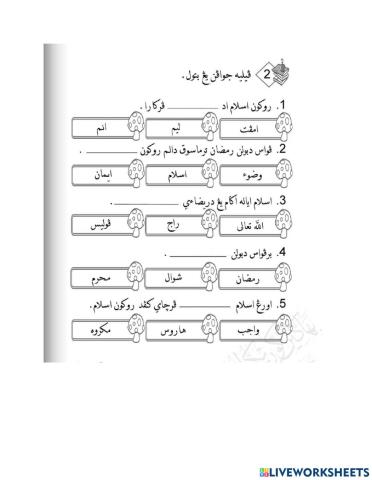 2 ڤيليه جواڤن يڠ بتول.
1. روكون اسلام اد ________ ڤركارا.
امڤت ليم انم
2. ڤواس دبولن رمضان ترماسوق دالم روكون ________ .
وضوء اسلام ايمان
3. اسلام اياله اݢام يڠ دريضاءي ________ .
الله تعالى راج ڤوليس
4. برڤواس دبولن ________ .
رمضان شوال محرم
5. اورڠ اسلام ________ ڤرچاي كڤد روكون اسلام.
واجب هاروس مكروه
LIVEWORKSHEETS